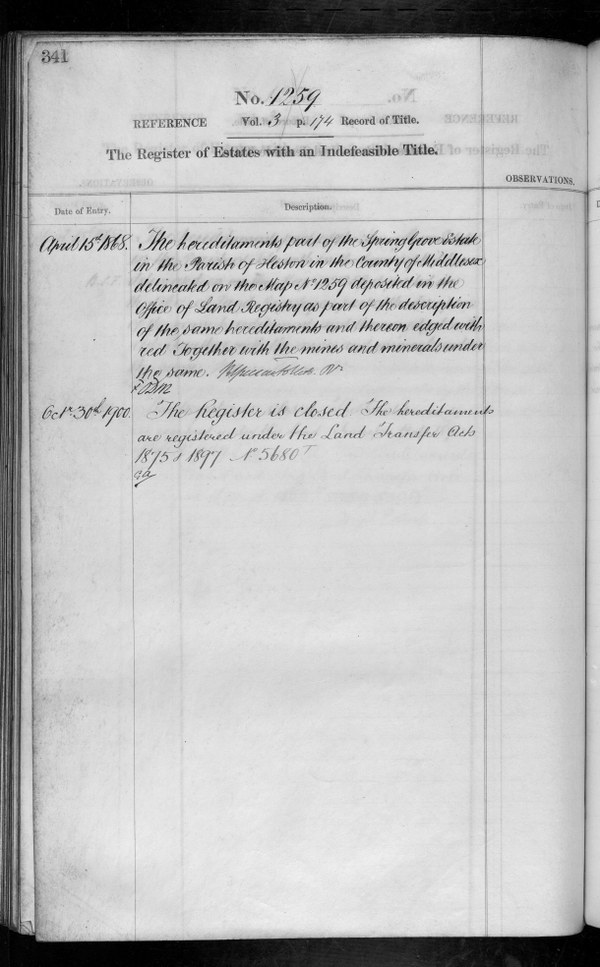 341
No. 1259
REFERENCE Vol. 3 p. 174 Record of Title.
The Register of Estates with an Indefeasible Title.
OBSERVATIONS.
Date of Entry. Description.
April 15th 1868. The hereditaments part of the Spring Grove Estate
in the Parish of Heston in the County of Middlesex
delineated on the Map No 1259 deposited in the
Office of Land Registry as part of the description
of the same hereditaments and thereon edged with
red Together with the mines and minerals under
the same.
Octr. 30th 1900. The Register is closed. The hereditaments
are registered under the Land Transfer Acts
1875 & 1897 No 5680